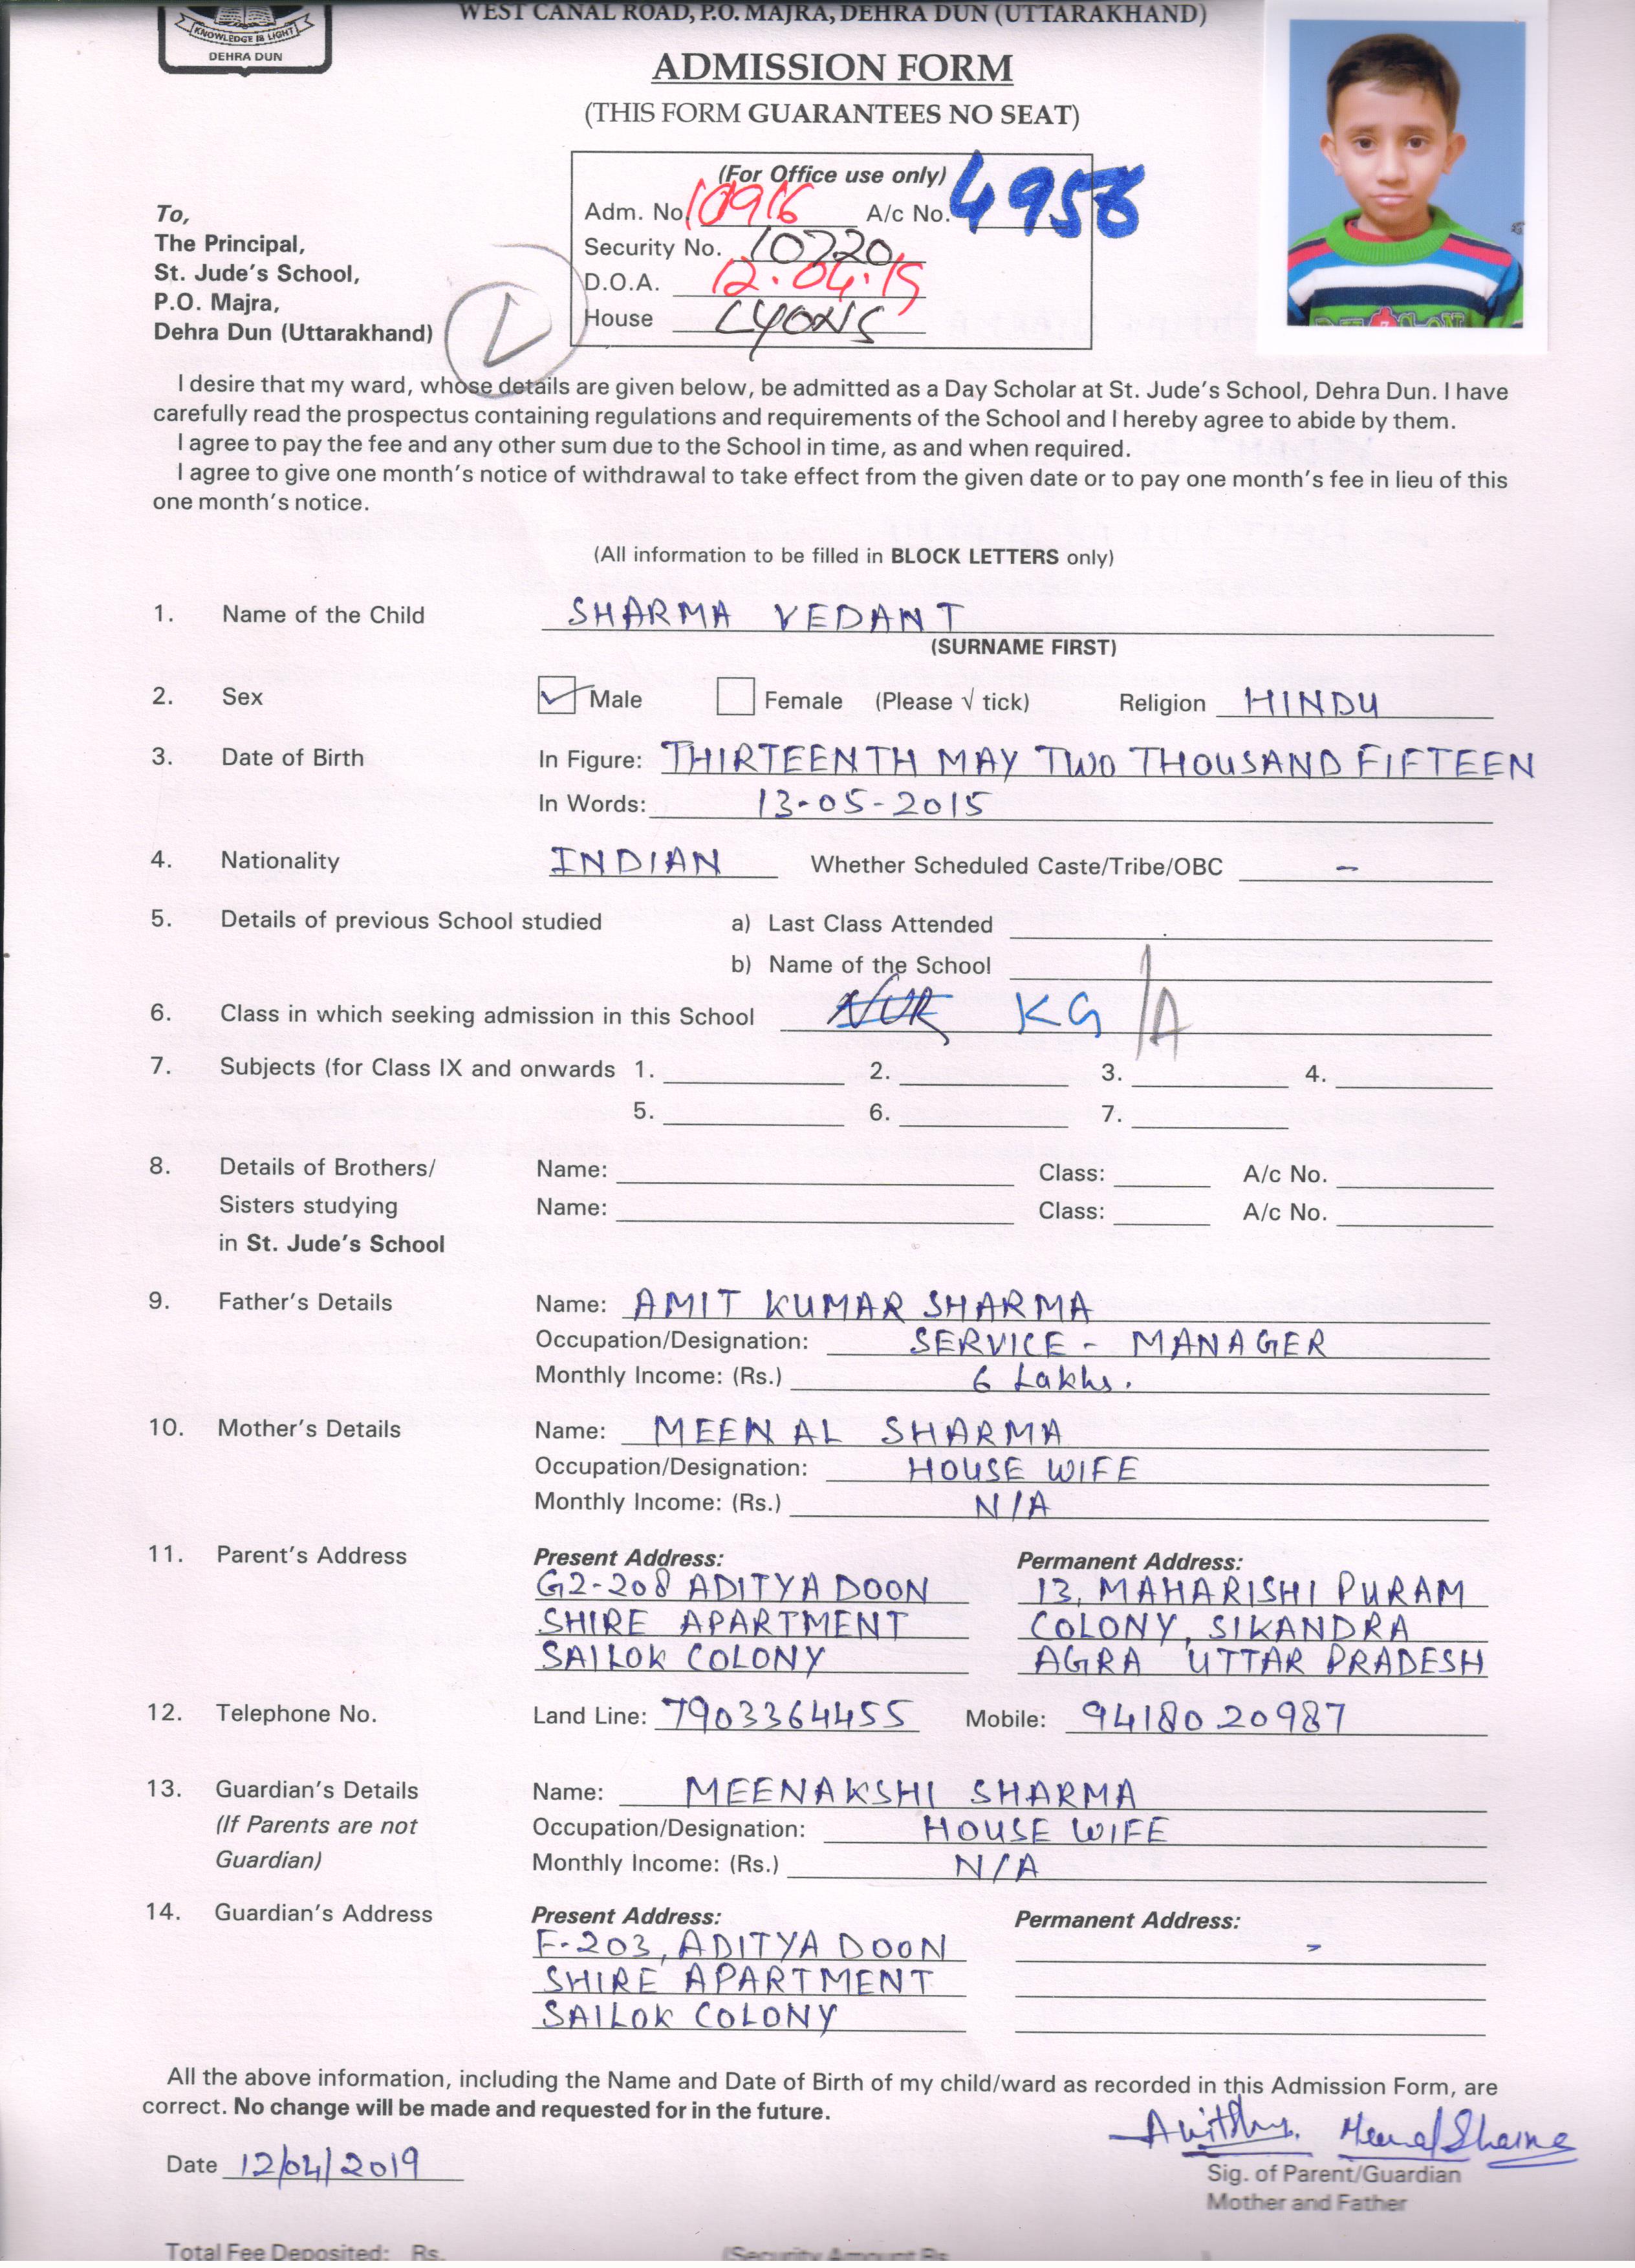 WEST CANAL ROAD, P.O. MAJRA, DEHRA DUN (UTTARAKHAND)
KNOWLEDGE IS LIGHT
DEHRA DUN
ADMISSION FORM
(THIS FORM GUARANTEES NO SEAT)
(For Office use only)
Adm. No. 10916 A/c No. 4958
Security No. 10720
D.O.A. 12.04.19
House LYONS
To,
The Principal,
St. Jude's School,
P.O. Majra,
Dehra Dun (Uttarakhand)
I desire that my ward, whose details are given below, be admitted as a Day Scholar at St. Jude's School, Dehra Dun. I have
carefully read the prospectus containing regulations and requirements of the School and I hereby agree to abide by them.
I agree to pay the fee and any other sum due to the School in time, as and when required.
I agree to give one month's notice of withdrawal to take effect from the given date or to pay one month's fee in lieu of this
one month's notice.
(All information to be filled in BLOCK LETTERS only)
1. Name of the Child SHARMA VEDANT
(SURNAME FIRST)
2. Sex Male Female (Please √ tick) Religion HINDU
3. Date of Birth In Figure: THIRTEENTH MAY TWO THOUSAND FIFTEEN
In Words: 13-05-2015
4. Nationality INDIAN Whether Scheduled Caste/Tribe/OBC -
5. Details of previous School studied a) Last Class Attended
b) Name of the School
6. Class in which seeking admission in this School NUR KG /A
7. Subjects (for Class IX and onwards 1. 2. 3. 4.
5. 6. 7.
8. Details of Brothers/ Name: Class: A/c No.
Sisters studying Name: Class: A/c No.
in St. Jude's School
9. Father's Details Name: AMIT KUMAR SHARMA
Occupation/Designation: SERVICE - MANAGER
Monthly Income: (Rs.) 6 Lakhs.
10. Mother's Details Name: MEENAL SHARMA
Occupation/Designation: HOUSE WIFE
Monthly Income: (Rs.) N/A
11. Parent's Address Present Address: Permanent Address:
G2-208 ADITYA DOON 13, MAHARISHI PURAM
SHIRE APARTMENT COLONY, SIKANDRA
SAILOK COLONY AGRA UTTAR PRADESH
12. Telephone No. Land Line: 7903364455 Mobile: 9418020987
13. Guardian's Details Name: MEENAKSHI SHARMA
(If Parents are not Occupation/Designation: HOUSE WIFE
Guardian) Monthly Income: (Rs.) N/A
14. Guardian's Address Present Address: Permanent Address:
F-203, ADITYA DOON -
SHIRE APARTMENT
SAILOK COLONY
All the above information, including the Name and Date of Birth of my child/ward as recorded in this Admission Form, are
correct. No change will be made and requested for in the future.
Meenal Sharma
Date 12/04/2019 Sig. of Parent/Guardian
Mother and Father
Total Fee Deposited: Rs. (Security Amount Rs